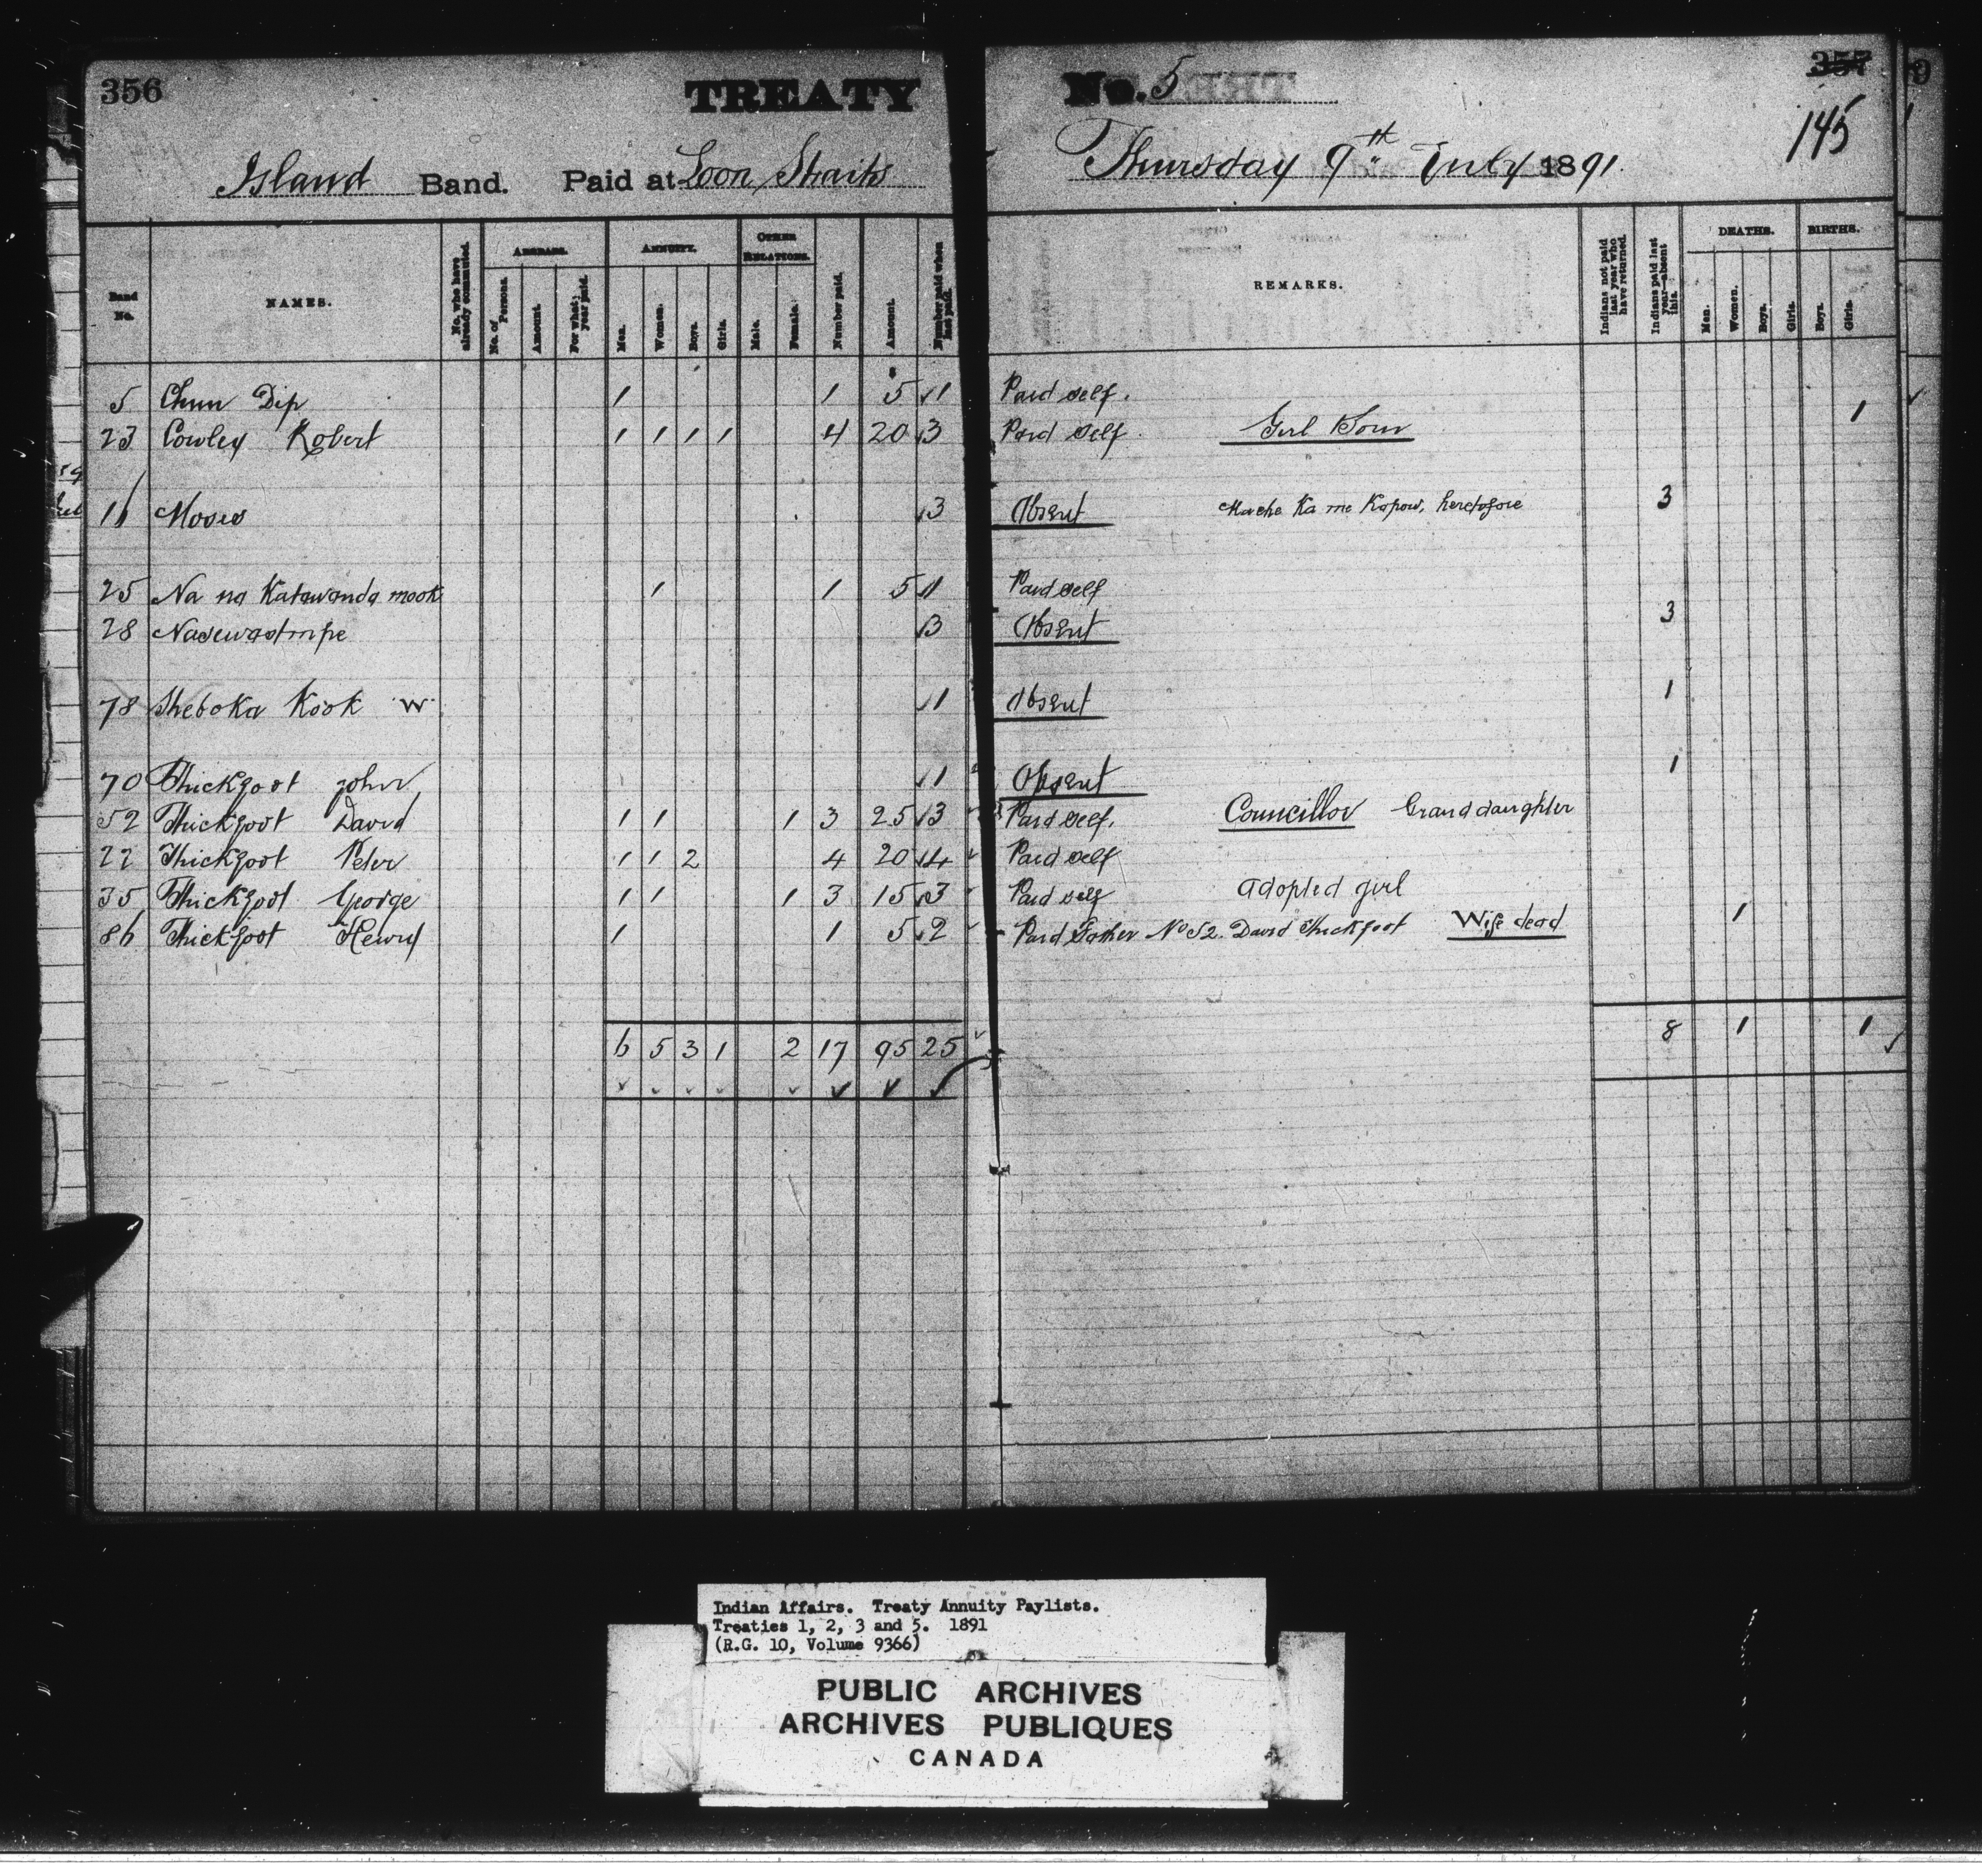 356 TREATY No. 5 357
145
Island Band. Paid at Loon Straits Thursday 9th July 1891.
Band No. NAMES. No. who have already commuted. ARREARS. No. of Persons. Amount. For what year paid. ANNUITY. Men. Women. Boys. Girls. OTHER RELATIONS. Male. Female. Number paid. Amount. Number paid when last paid. REMARKS. Indians not paid last year who have returned. Indians paid last year—absent this. DEATHS. Men. Women. Boys. Girls. BIRTHS. Boys. Girls.
$
5 Chun Dip 1 1 5 √1 Paid self.
23 Cowley Robert 1 1 1 1 4 20 √3 Paid self. Girl Born 1
16 Moses √3 Absent Mache Ka me Kapow, heretofore 3
25 Na na Katawanda mook 1 1 5 √1 Paid self
28 √3 Absent 3
78 Sheboka Kook W. √1 Absent 1
70 Thickfoot John √1 Absent 1
52 Thickfoot David 1 1 1 3 25 √3 Paid self. Councillor Grand daughter
22 Thickfoot Peter 1 1 2 4 20 √4 Paid self
35 Thickfoot George 1 1 1 3 15 √3 Paid self adopted girl
86 Thickfoot Henry 1 1 5 √2 Paid Father No 52 David Thickfoot Wife dead 1
6 5 3 1 2 17 95 25 8 1 1
Indian Affairs. Treaty Annuity Paylists.
Treaties 1, 2, 3 and 5. 1891
(R.G. 10, Volume 9366)
PUBLIC ARCHIVES
ARCHIVES PUBLIQUES
CANADA